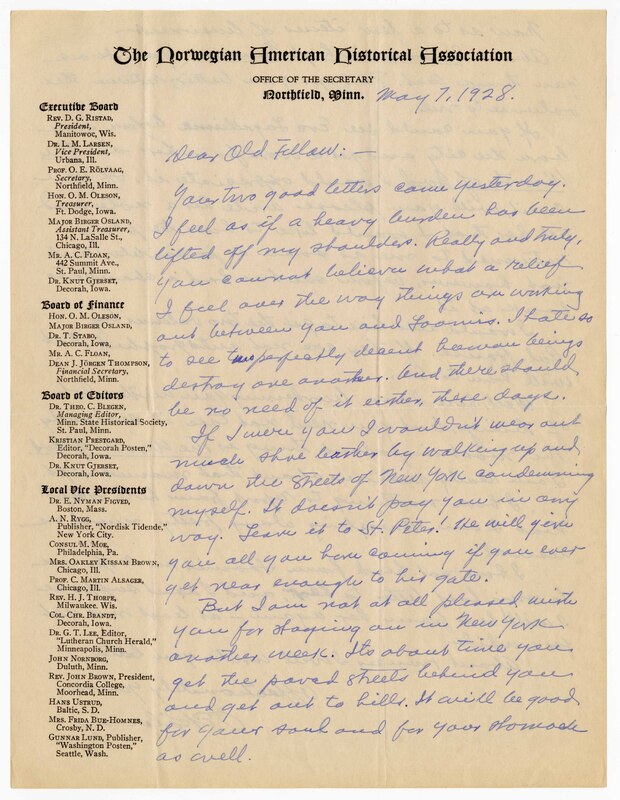 The Norwegian American Historical Association
OFFICE OF THE SECRETARY
Northfield, Minn. May 7, 1928.
Executive Board
REV. D. G. RISTAD,
President,
Manitowoc, Wis.
DR. L. M. LARSEN,
Vice President,
Urbana, Ill.
PROF. O. E. RÖLVAAG,
Secretary,
Northfield, Minn.
HON. O. M. OLESON,
Treasurer,
Ft. Dodge, Iowa.
MAJOR BIRGER OSLAND,
Assistant Treasurer,
134 N. LaSalle St.,
Chicago, Ill.
MR. A. C. FLOAN,
442 Summit Ave.,
St. Paul, Minn.
DR. KNUT GJERSET,
Decorah, Iowa.
Board of Finance
HON. O. M. OLESON,
MAJOR BIRGER OSLAND,
DR. T. STABO,
Decorah, Iowa,
MR. A. C. FLOAN,
DEAN J. JÖRGEN THOMPSON,
Financial Secretary,
Northfield, Minn.
Board of Editors
DR. THEO. C. BLEGEN,
Managing Editor,
Minn. State Historical Society,
St. Paul, Minn.
KRISTIAN PRESTGARD,
Editor, "Decorah Posten,"
Decorah, Iowa.
DR. KNUT GJERSET,
Decorah, Iowa.
Local Vice Presidents
DR. E. NYMAN FIGVED,
Boston, Mass.
A. N. RYGG,
Publisher, "Nordisk Tidende,"
New York City.
CONSUL M. MOE,
Philadelphia, Pa.
MRS. OAKLEY KISSAM BROWN,
Chicago, Ill.
PROF. C. MARTIN ALSAGER,
Chicago, Ill.
REV. H. J. THORPE,
Milwaukee. Wis.
COL. CHR. BRANDT,
Decorah, Iowa.
DR. G. T. LEE, Editor,
"Lutheran Church Herald,"
Minneapolis, Minn.
JOHN NORNBORG,
Duluth, Minn.
REV. JOHN BROWN, President,
Concordia College,
Moorhead, Minn.
HANS USTRUD,
Baltic, S. D.
MRS. FRIDA BUE-HOMNES,
Crosby, N. D.
GUNNAR LUND, Publisher,
"Washington Posten,"
Seattle, Wash.
Dear Old Fellow: —
Your two good letters came yesterday.
I feel as if a heavy burden has been
lifted off my shoulders. Really and truly,
you cannot believe what a relief
I feel over the way things are working
out between you and Loomis. I hate so
to see two perfectly decent human beings
destroy one another. And there should
be no need of it either, these days.
If I were you I wouldn't wear out
much shoe leather by walking up and
down the streets of New York condemning
myself. It doesn't pay you in any
way. Leave it to St. Peter! He will give
you all you have coming if you ever
get near enough to his gate.
But I am not at all pleased with
you for staying on in New York
another week. It's about time you
get the paved streets behind you
and get out to hills. It will be good
for your soul and for your stomack
as well.